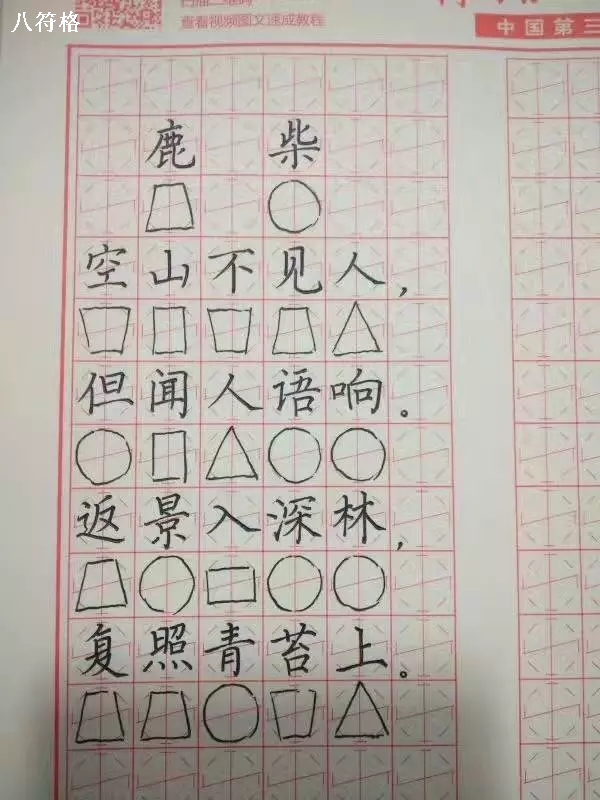 八符格
查看视频图文速成教程
中国第三
鹿柴
空山不见人，
但闻人语响。
返景入深林，
复照青苔上。